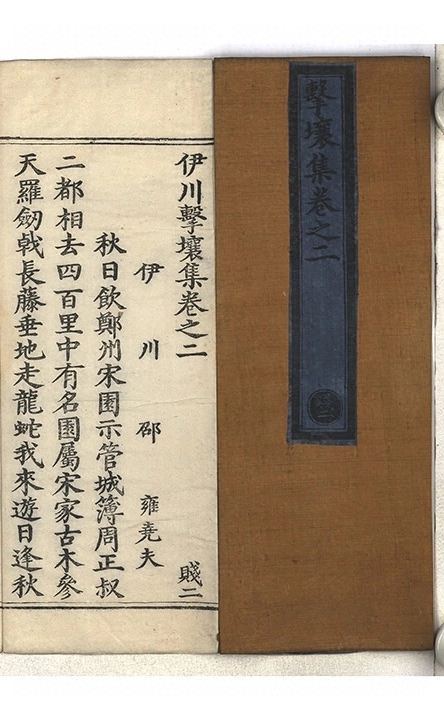 擊壤集卷之二
伊川擊壤集卷之二
賤二
伊川邵雍堯夫
秋日飲鄭州宋園示管城簿周正叔
二都相去四百里中有名園屬宋家古木參
天羅劒戟長藤垂地走龍虵我來遊日逢秋